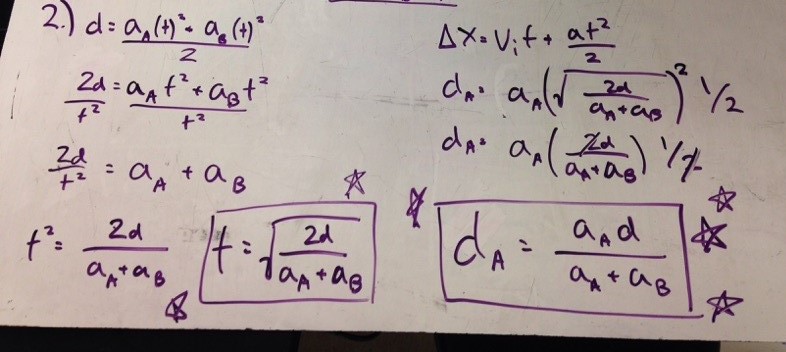 2.) d = a_A(t)² + a_B(t)² / 2
2d / t² = a_A t² + a_B t² / t²
2d / t² = a_A + a_B
t² = 2d / a_A + a_B
t = √(2d / a_A + a_B)
Δx = V_i t + at² / 2
d_A = a_A (√(2d / a_A + a_B))² 1/2
d_A = a_A (2d / a_A + a_B) 1/2
d_A = a_A d / a_A + a_B